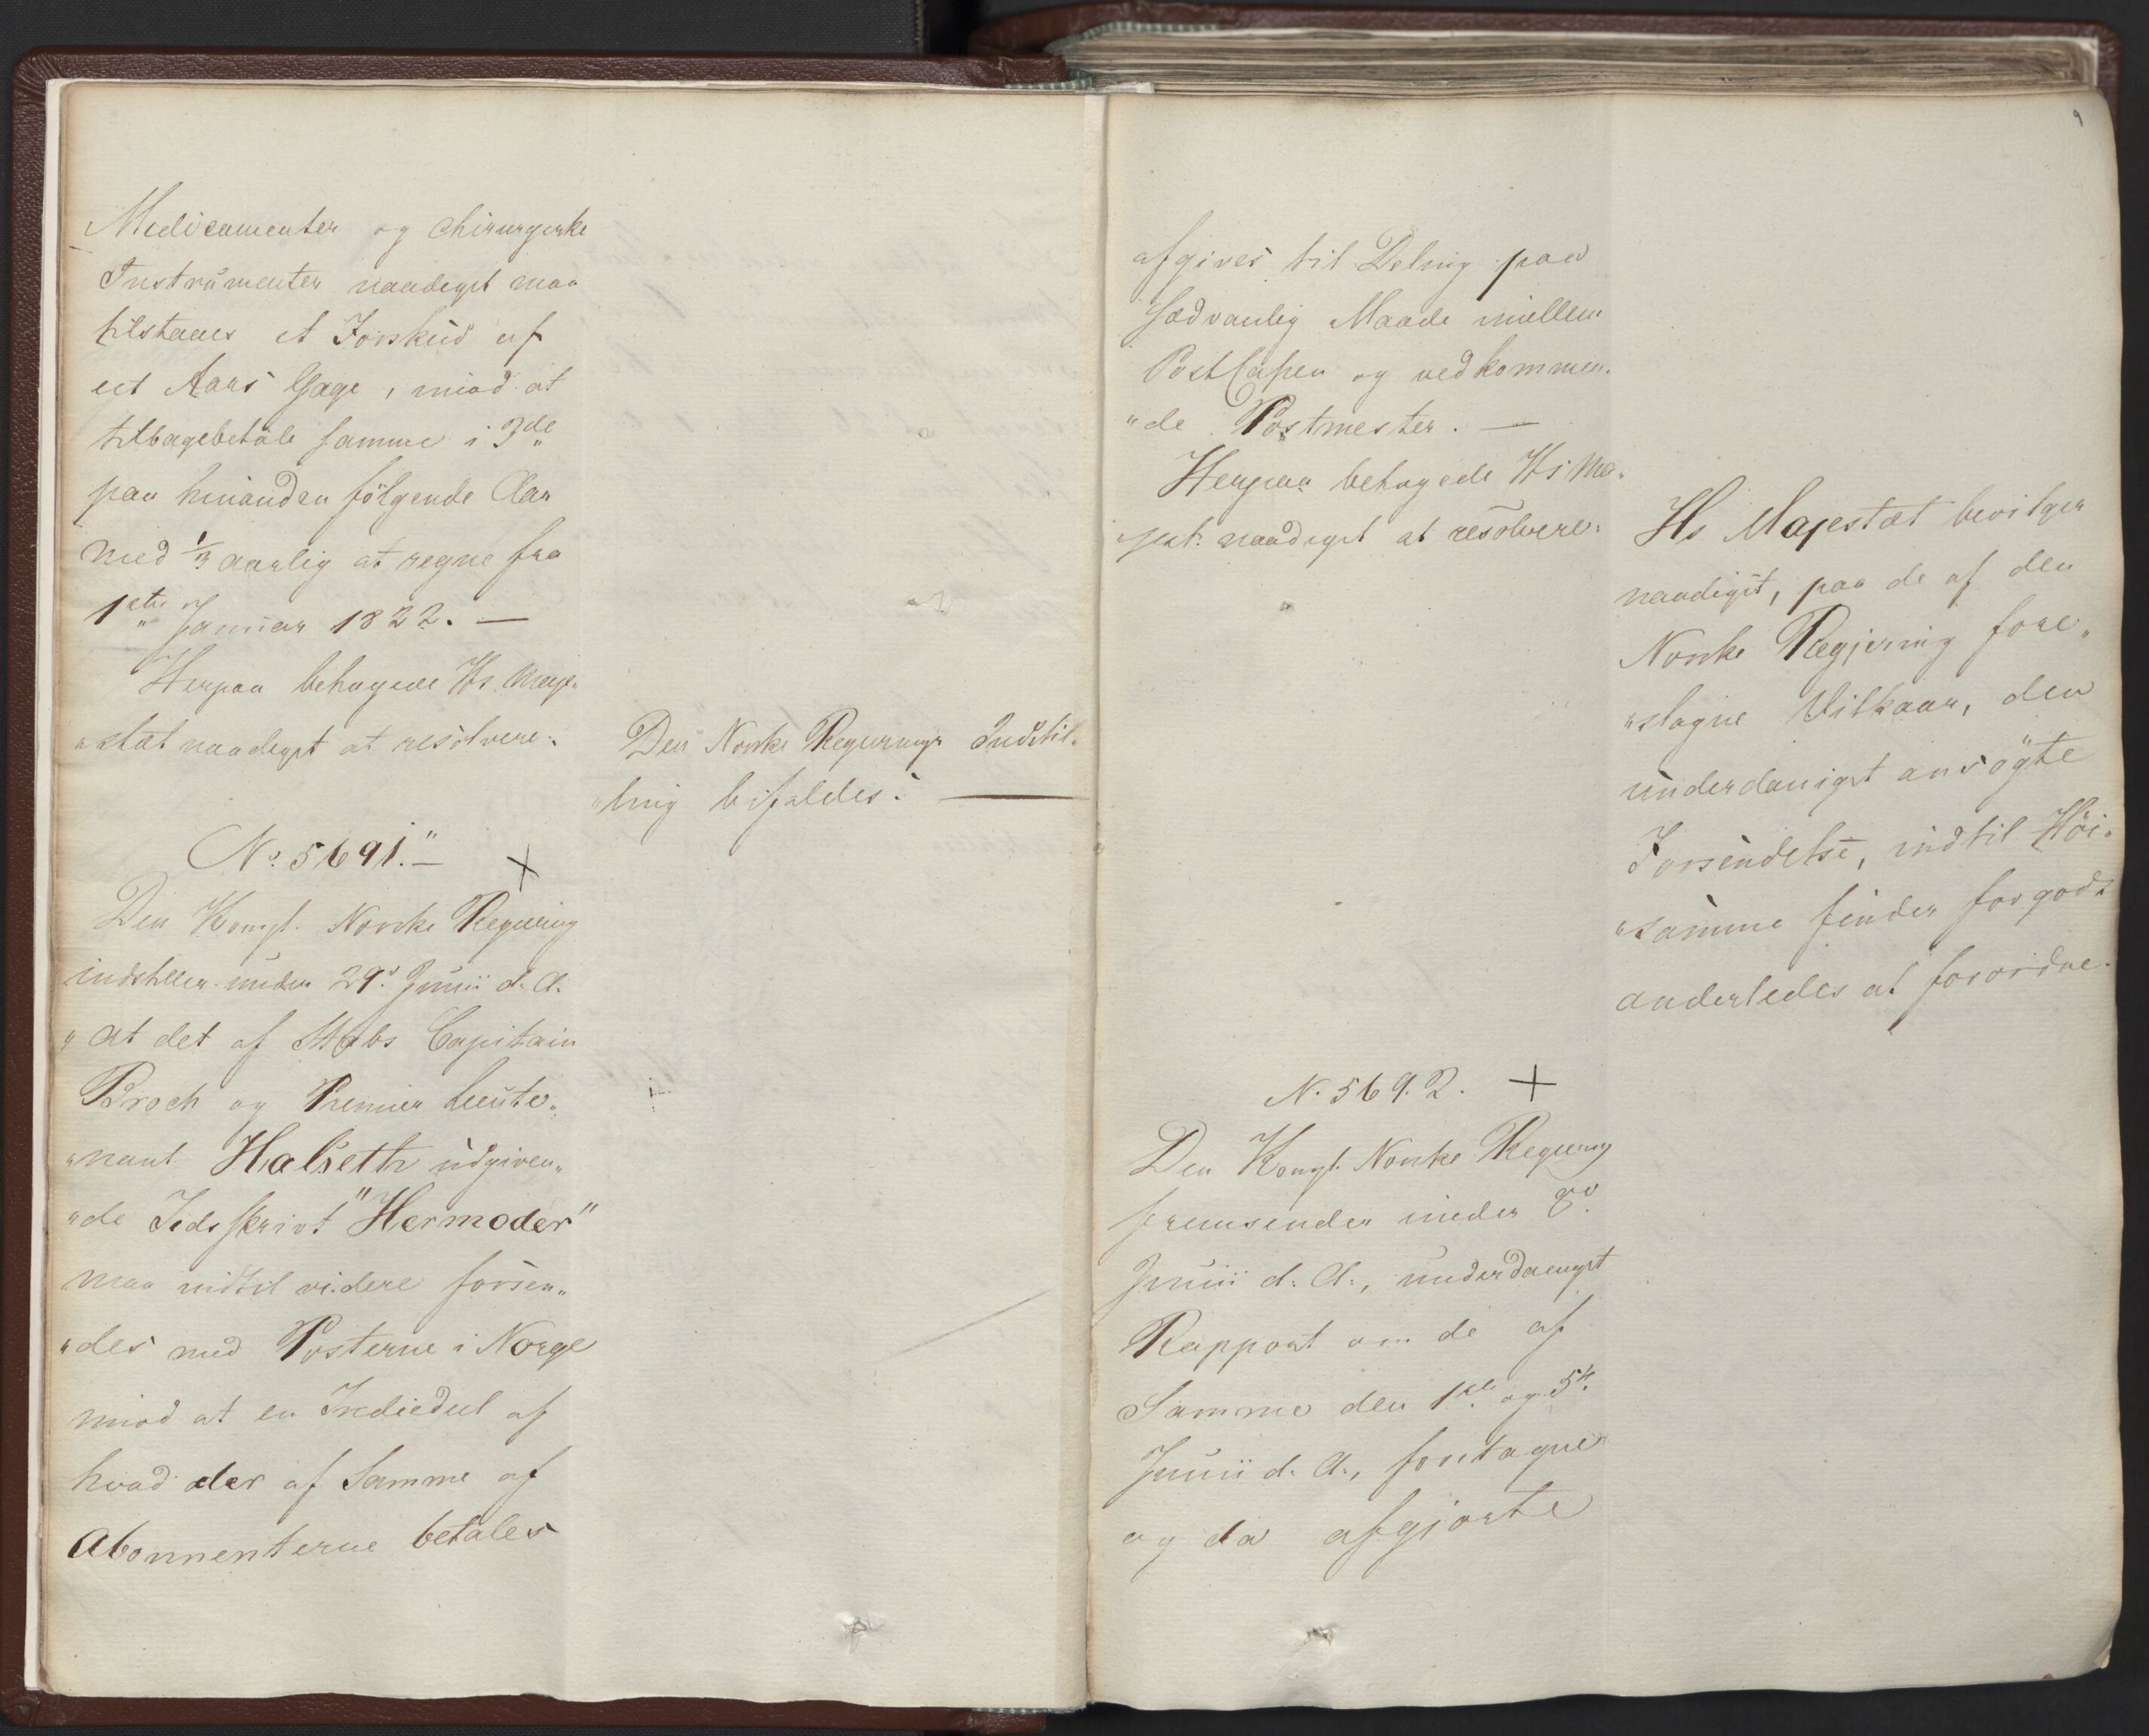 Medicamenter og chirurgiske
Instrumenter naadigst maa
tilstaaes et Forskud af
eet Aars Gage, mod at
tilbagebetale samme i 3de
paa hinanden følgende Aar
med 1/3 aarlig at regne fra
1ste Januar 1822. —
Herpaa behagede Hs. Maje„
„stæt naadigst at resolvere:
Den Norske Regjerings Indstil„
„ling bifaldes. —
No. 5691. —
Den Kongl. Norske Regjering
indstiller under 29de Junii d. A.
„at det af Stabs Capitain
Broch og Premier Lieute„
„nant Halseth udgiven„
„de Tidsskrivt "Hermoder"
maa indtil videre forsen„
„des med Posterne i Norge
mod at en Trediedeel af
hvad der af Samme af
Abonnenterne betales
9
afgives til Deling paa
sædvanlig Maade imellem
PostCassen og vedkommen„
„de Postmester. —
Herpaa behagede Hs. Ma„
jest: naadigst at resolvere:
Hs Majestæt bevilger
naadigst, paa de af den
Norske Regjering fore„
„slagne Vilkaar, den
underdanigst ansögte
Forsendelse, indtil Höi„
„samme finder for godt
anderledes at forordne.
No. 5692.
Den Kongl. Norske Regjering
fremsender under 8de
Junii d. A., underdanigst
Rapport om de af
Samme den 1ste og 5te
Junii d. A., foretagne
og da afgjorte